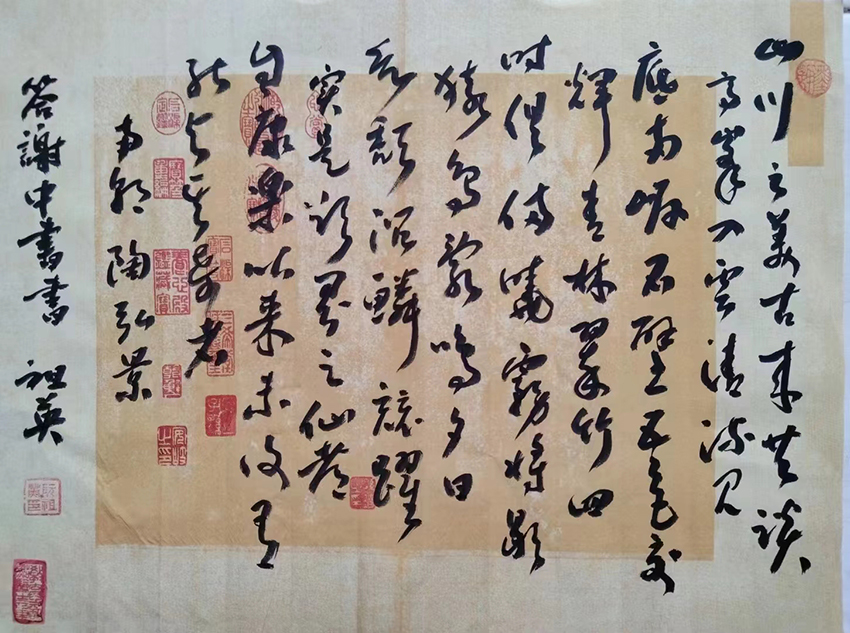 山川之美古来共談
高峯入雲清流见
底两岸石壁五色交
輝青林翠竹四
时俱備曉霧将歇
猿鸟亂鸣夕日
欲頹沉鱗競躍
实是欲界之仙都
自康樂以来未復有
能与其奇者
南朝 陶弘景
答謝中書書 祖英